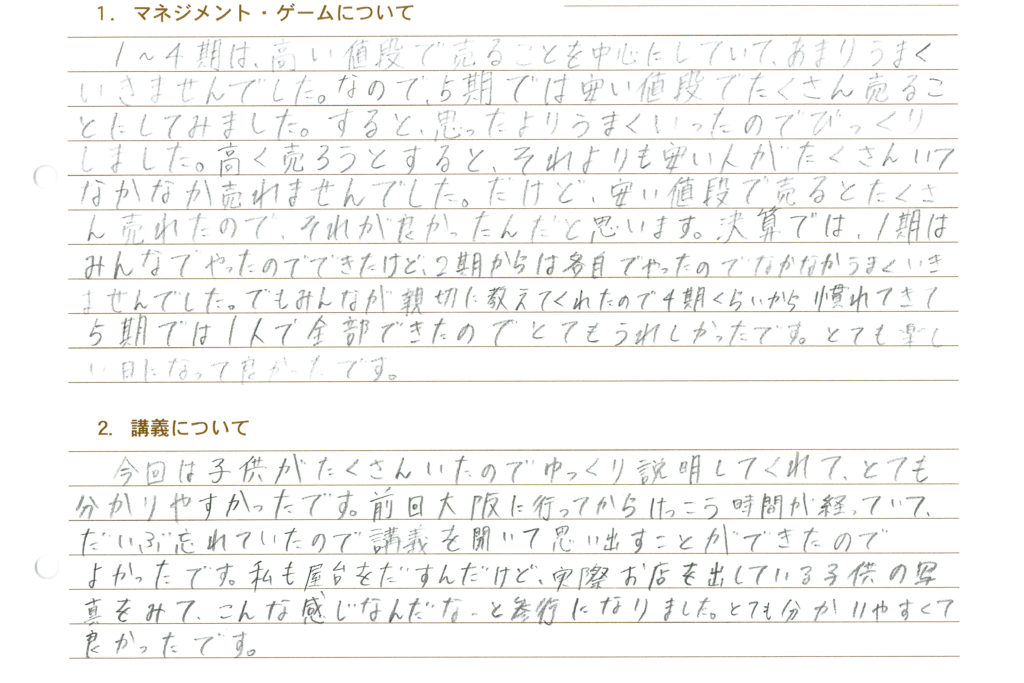 1. マネジメント・ゲームについて
1〜4期は、高い値段で売ることを中心にしていて、あまりうまく
いきませんでした。なので、5期では安い値段でたくさん売るこ
とにしてみました。すると、思ったよりうまくいったのでびっくり
しました。高く売ろうとすると、それよりも安い人がたくさんいて
なかなか売れませんでした。だけど、安い値段で売るとたくさ
ん売れたので、それが良かったんだと思います。決算では、1期は
みんなでやったのでできたけど、2期からは各自でやったのでなかなかうまくいき
ませんでした。でもみんなが親切に教えてくれたので4期くらいから慣れてきて
5期では1人で全部できたのでとてもうれしかったです。とても楽し
い日になって良かったです。
2. 講義について
今回は子供がたくさんいたのでゆっくり説明してくれて、とても
分かりやすかったです。前回大阪に行ってからけっこう時間が経っていて、
だいぶ忘れていたので講義を聞いて思い出すことができたので
よかったです。私も屋台をだすんだけど、実際お店を出している子供の写
真をみて、こんな感じなんだなーと参考になりました。とても分かりやすくて
良かったです。